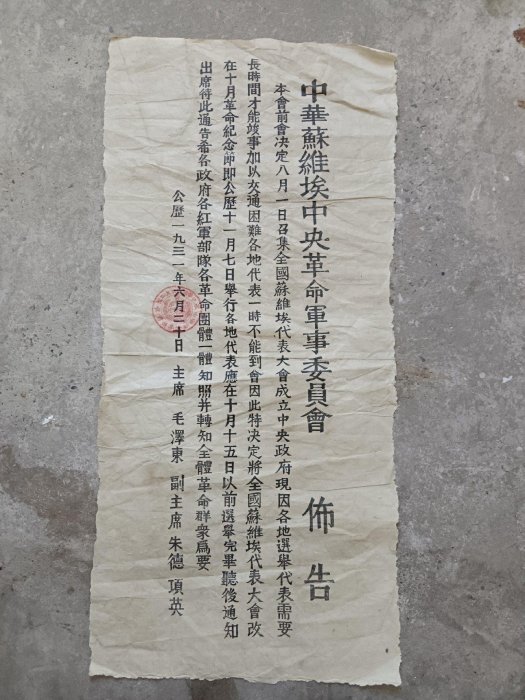 中華蘇維埃中央革命軍事委員會 佈告
本會前會决定八月一日召集全國蘇維埃代表大會成立中央政府現因各地選舉代表需要
長時間才能竣事加以交通困難各地代表一時不能到會因此特决定將全國蘇維埃代表大會改
在十月革命紀念節即公歷十一月七日舉行各地代表應在十月十五日以前選舉完畢聽後通知
出席待此通告希各政府各紅軍部隊各革命團體一體知照并轉知全體革命群衆爲要
公歷一九三一年六月二十日 主席 毛澤東 副主席 朱德 項英